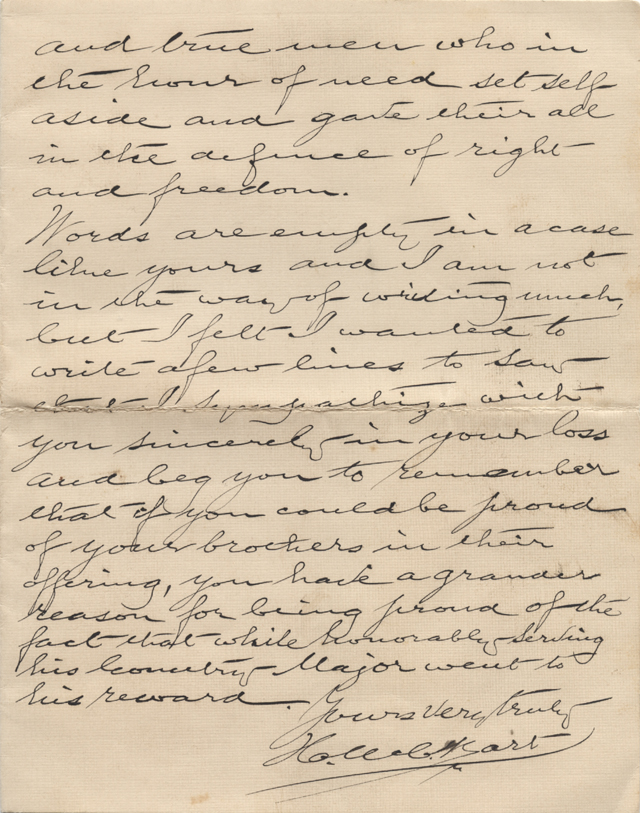 and true men who in
the hour of need set self
aside and gave their all
in the defence of right
and freedom.
Words are empty in a case
like yours and I am not
in the way of writing much,
but I felt I wanted to
write a few lines to say
that I sympathize with
you sincerely in your loss
and beg you to remember
that if you could be proud
of your brothers in their
offering, you have a grander
reason for being proud of the
fact that while honorably serving
his Country Major went to
his reward.
Yours very truly